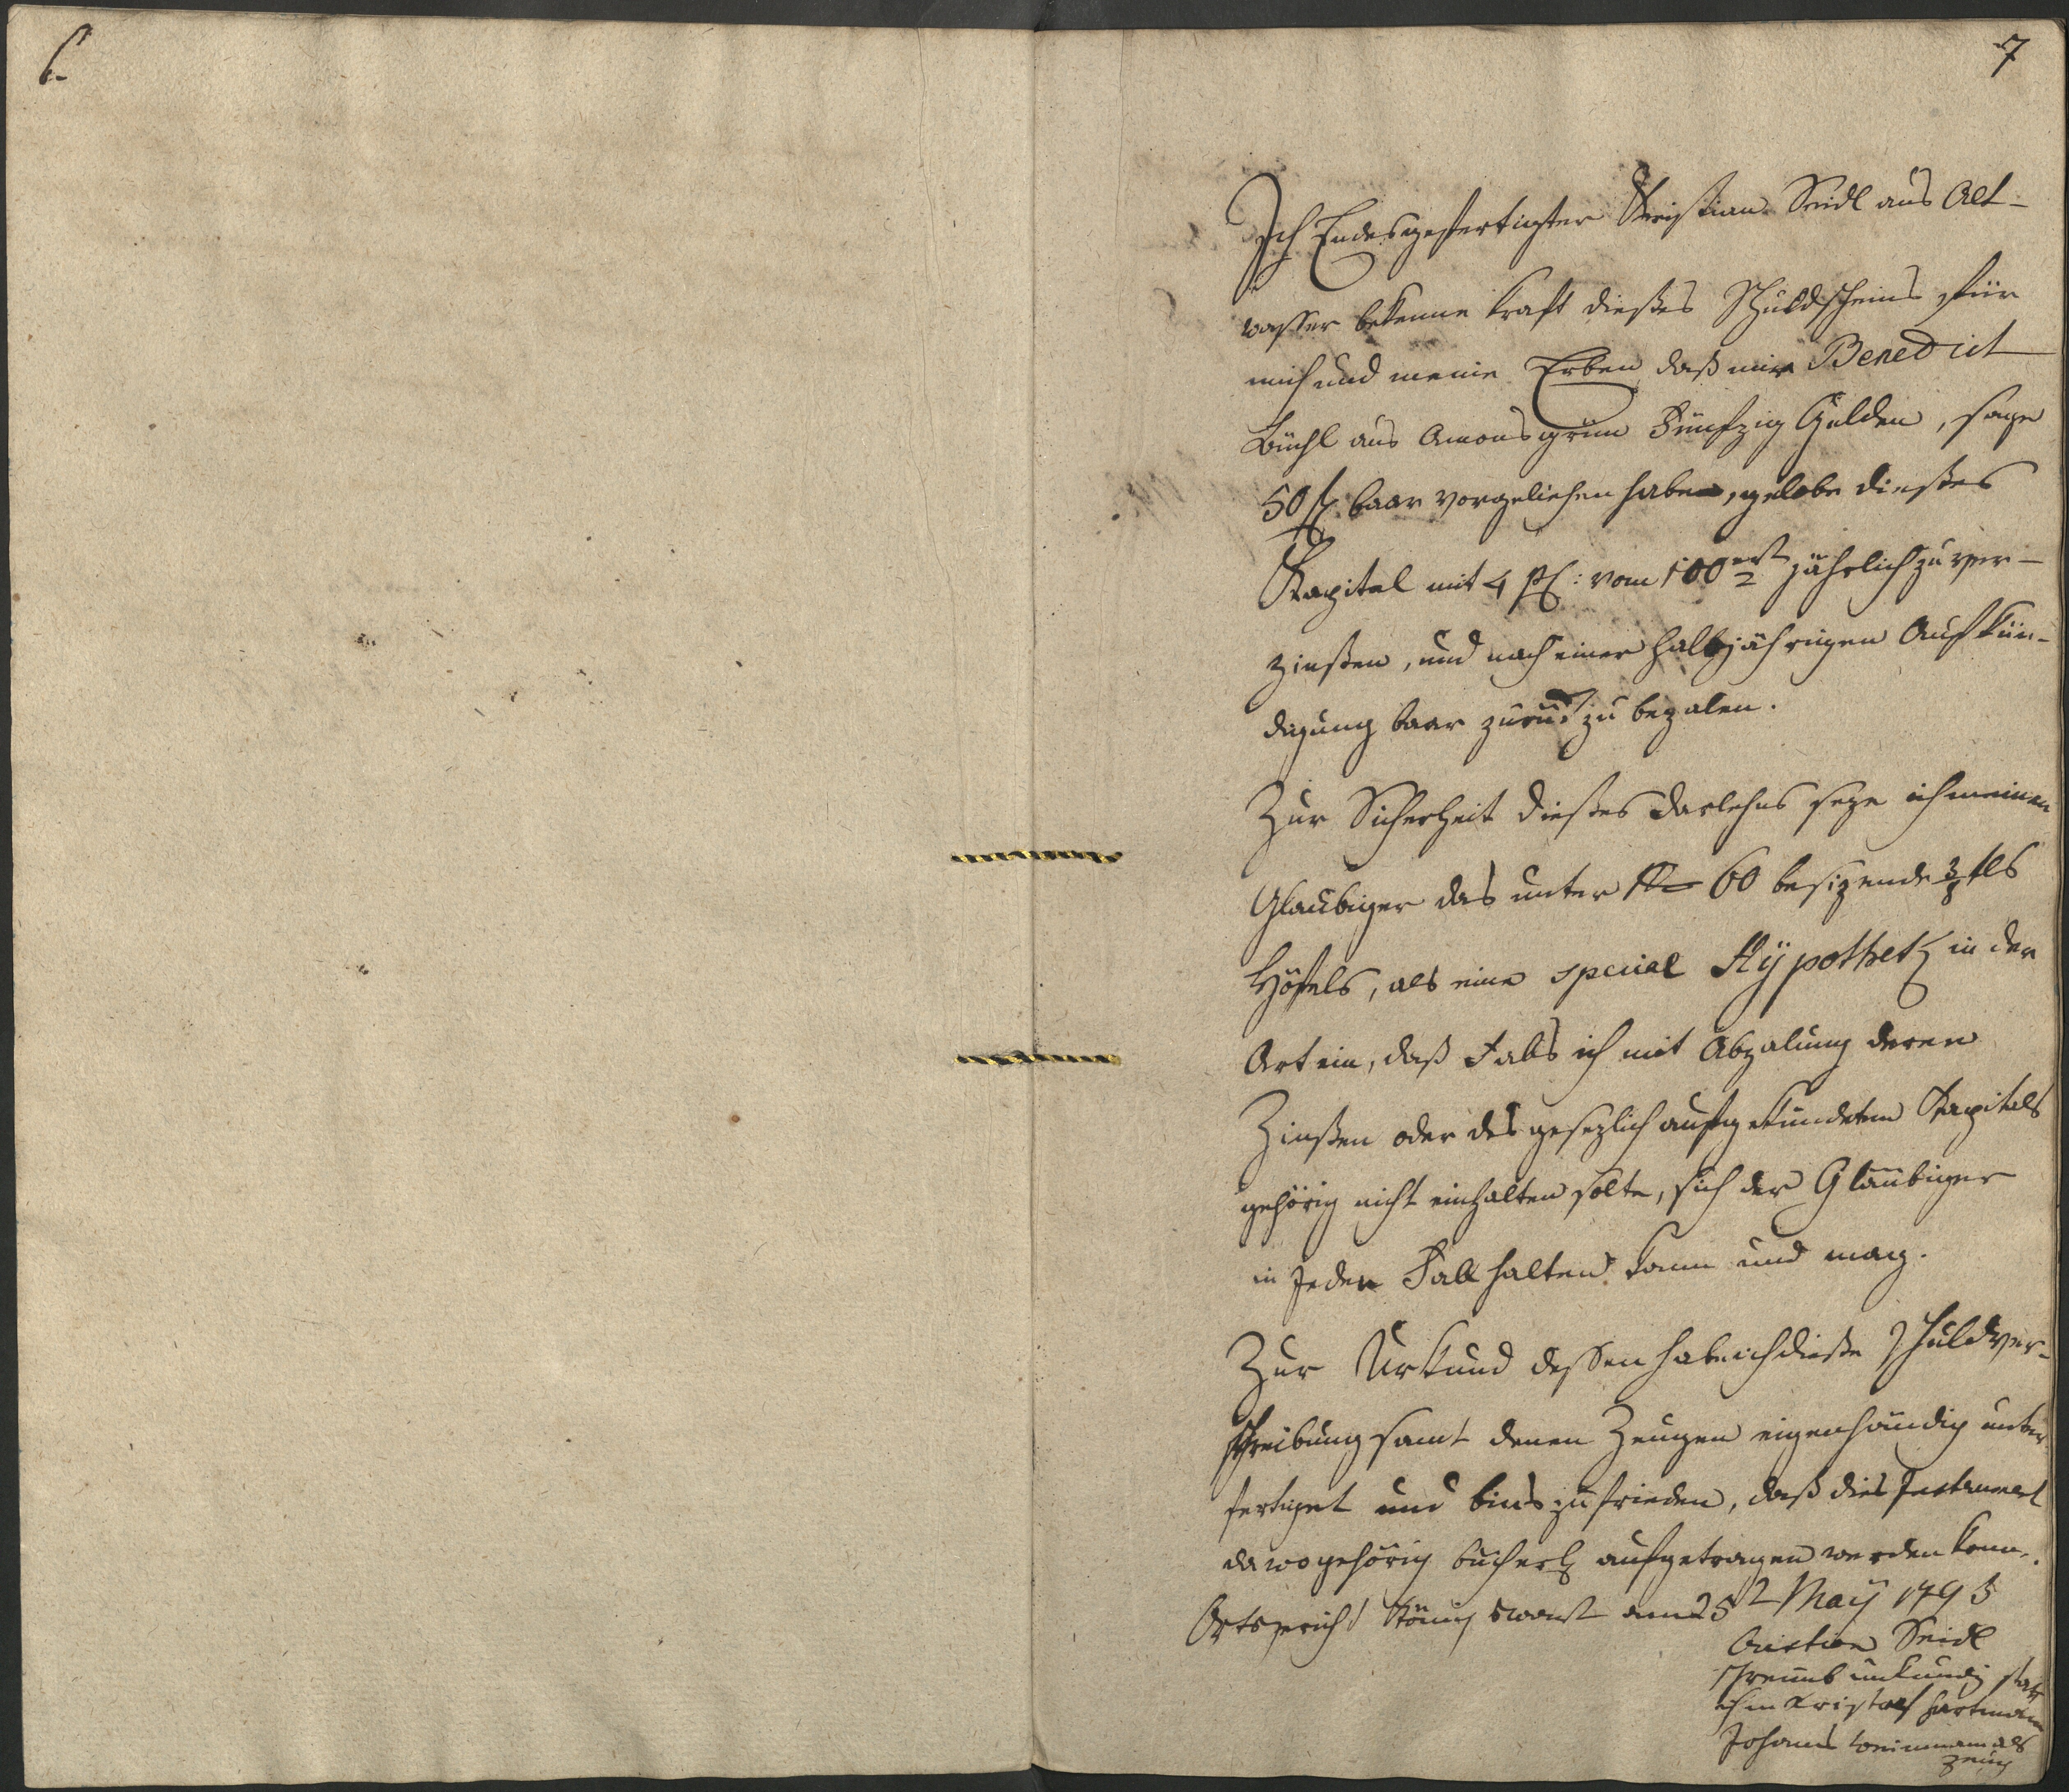 6.
7
Ich Endesgefertigter Kristian Seidl aus Alt-
wasser bekenne kraft dießes Schuldscheins für
mich und meine Erben daß mir Benedict
Büchl aus Amonsgrün Fünfzig Gulden, sage
50 f baar vorgeliehen haben, gelobe dießes
Kapital mit 4 pC: vom 100ert jährlich zu ver-
zinßen, und nach einer halbjährigen Aufkün-
digung baar zurück zu bezalen.
Zur Sicherheit dießes Darlehns seze ich meinen
Glaubiger das unter No 60 besizende 3/8tls
Höfels, als eine special Hÿpothek in der
Art ein, daß Fals ich mit Abzalung deren
Zinßen oder des gesezlich aufgekündeten Kapitals
gehörig nicht einhalten solte, sich der Glaubiger
in jeden Fall halten kann und mag.
Zur Urkund dessen habe ich dieße Schuldver-
schreibung samt denen Zeugen eigenhändig unter-
fertiget und bins zufrieden, daß dies Instrument
da wo gehörig bücherl aufgetragen werden kann.
Ortsgericht Königswart den 25t Maÿ 1795
Cristian Seidl
schreibens unkundig statt
ihm Kristoph Hartmann
Johannes Weinmann als
Zeug